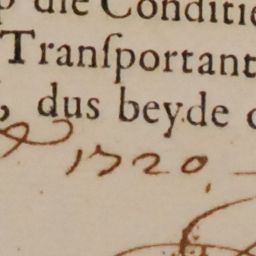 die Conditie
Tranſportant
, dus beyde
1720.